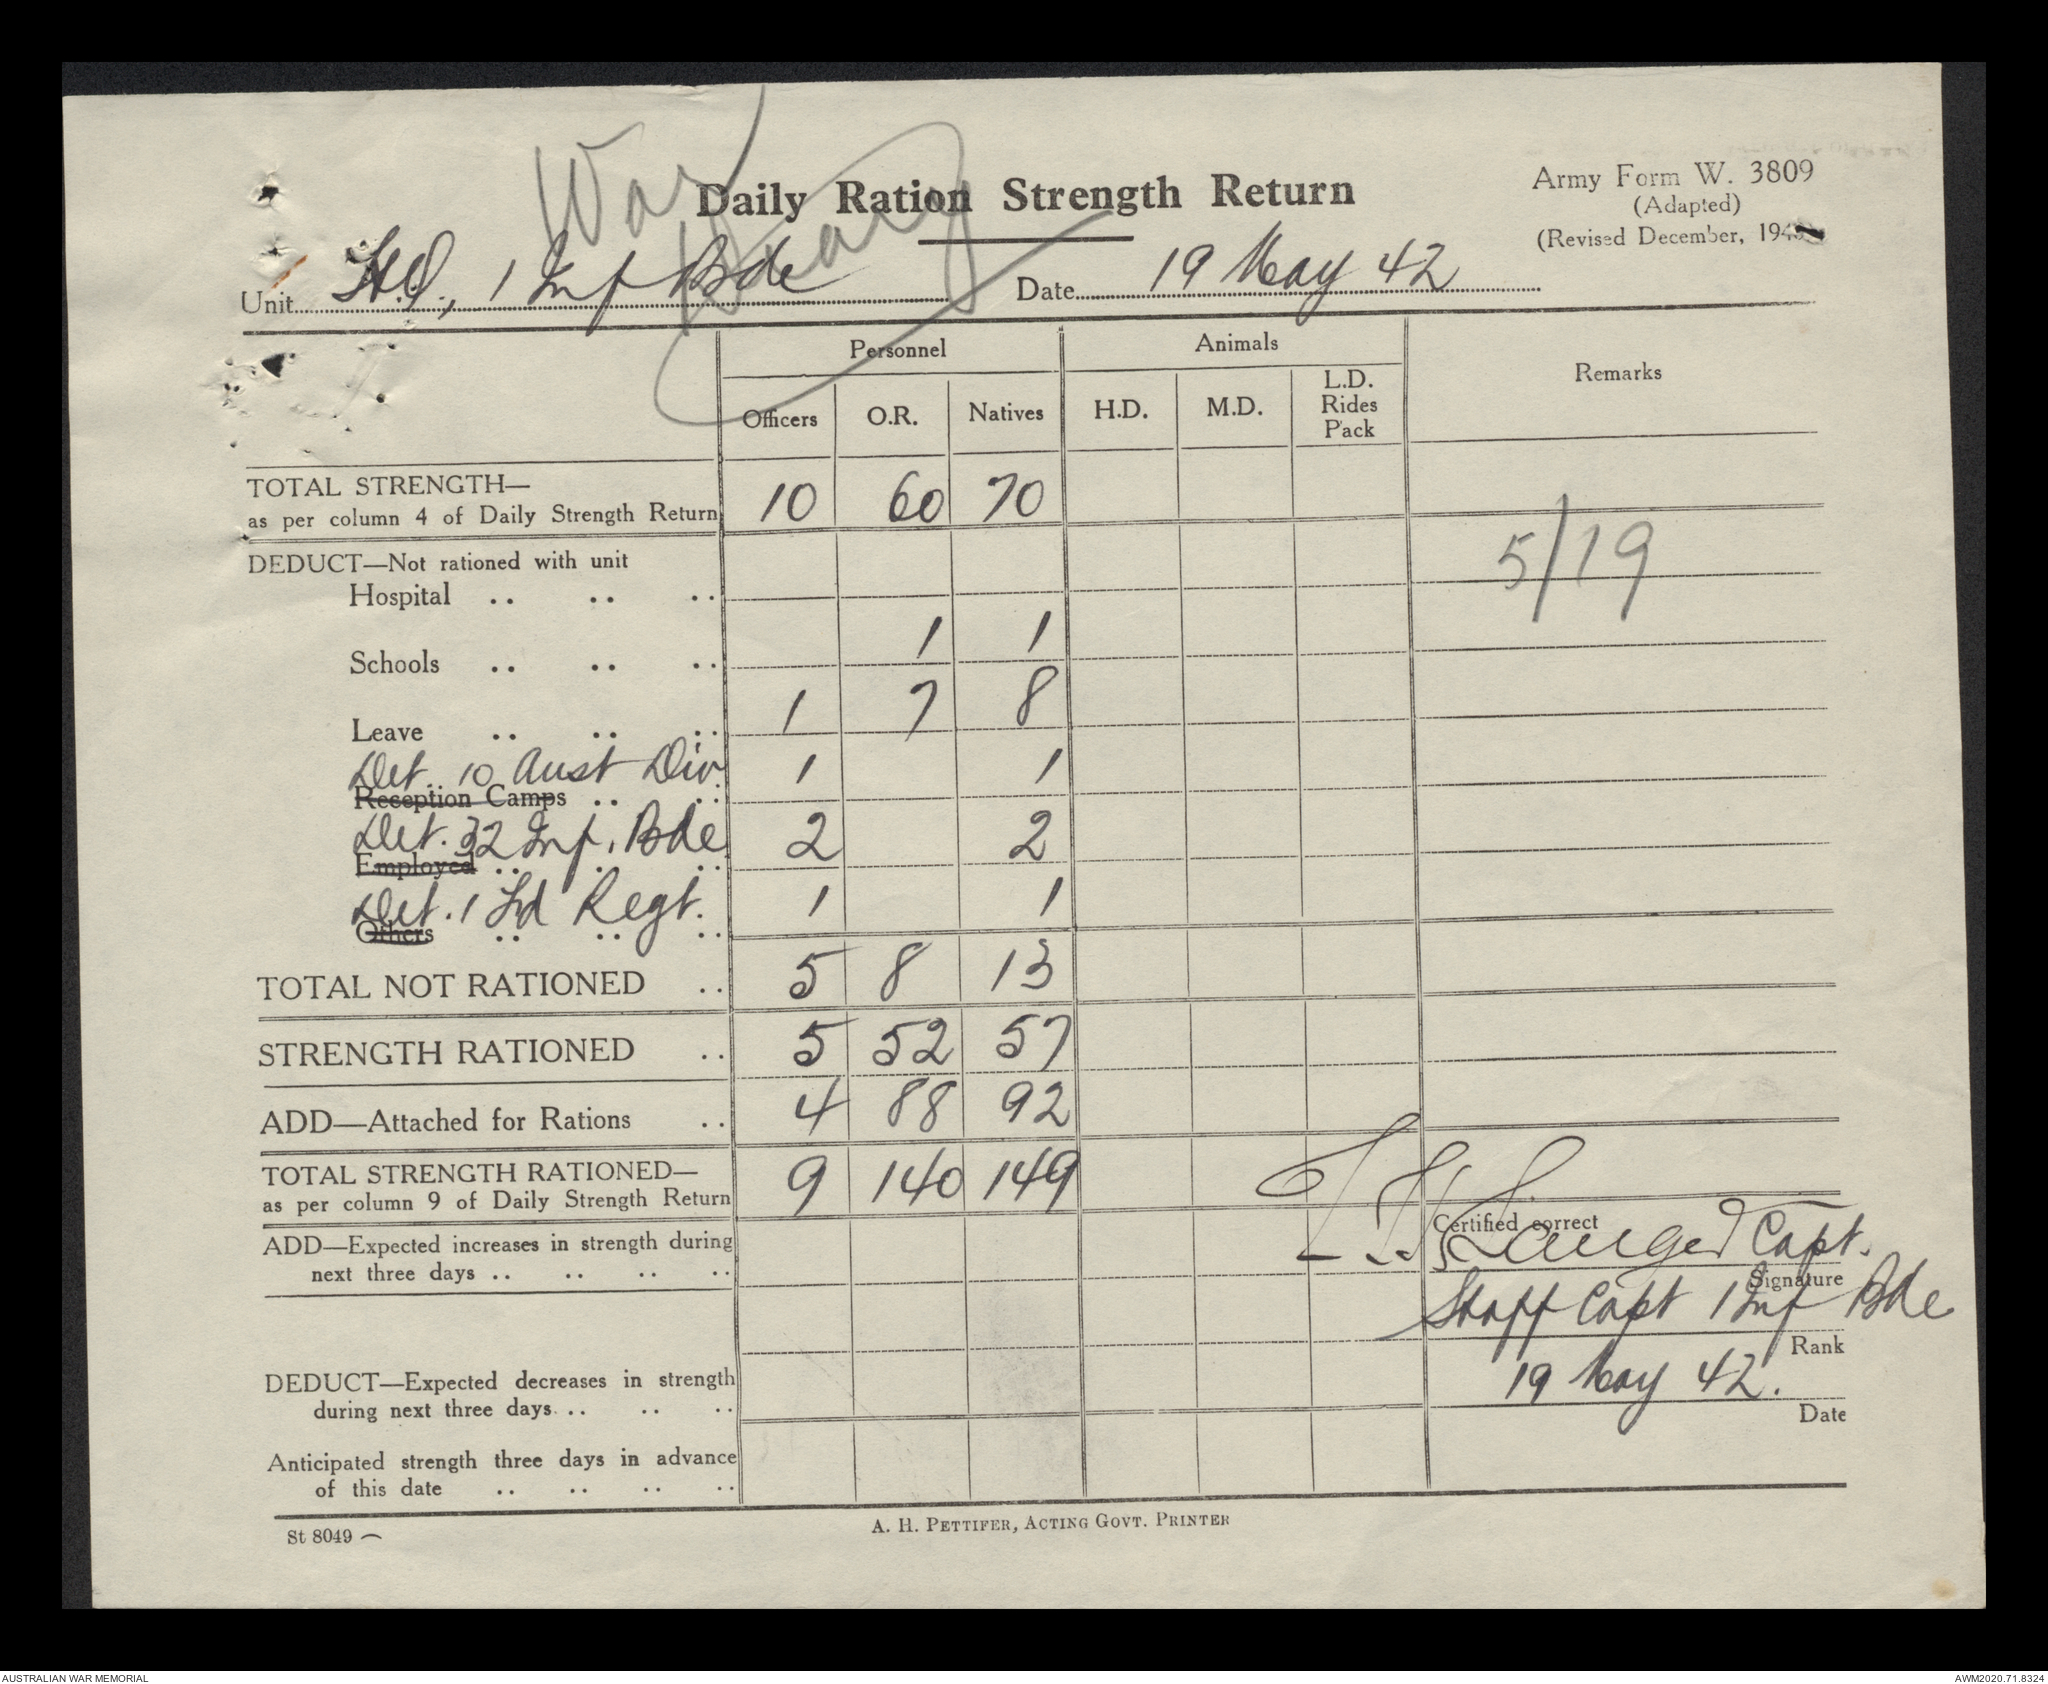 War
Diary
Daily Ration Strength Return
Army Form W. 3809
(Adapted)
(Revised December, 194
Unit H.Q., 1 Inf Bde Date 19 May 42
Personnel Animals Remarks
Officers O.R. Natives H.D. M.D. L.D. Rides Pack
TOTAL STRENGTH—
as per column 4 of Daily Strength Return 10 60 70
5/19
DEDUCT—Not rationed with unit
Hospital .. .. ..
Schools .. .. .. 1 1
Leave .. .. .. 1 7 8
Det. 10 Aust Div 1 1
Reception Camps .. ..
Det. 32 Inf. Bde 2 2
Employed .. .. ..
Det. 1 Fd Regt. 1 1
Others .. .. ..
TOTAL NOT RATIONED .. 5 8 13
STRENGTH RATIONED .. 5 52 57
ADD—Attached for Rations .. 4 88 92
TOTAL STRENGTH RATIONED—
as per column 9 of Daily Strength Return 9 140 149
Certified correct
Capt.
Signature
ADD—Expected increases in strength during
next three days .. .. .. ..
Staff Capt 1 Inf Bde
Rank
19 May 42.
Date
DEDUCT—Expected decreases in strength
during next three days. .. .. ..
Anticipated strength three days in advance
of this date .. .. .. ..
St 8049 —
A. H. PETTIFER, ACTING GOVT. PRINTER
AUSTRALIAN WAR MEMORIAL
AWM2020.71.8324